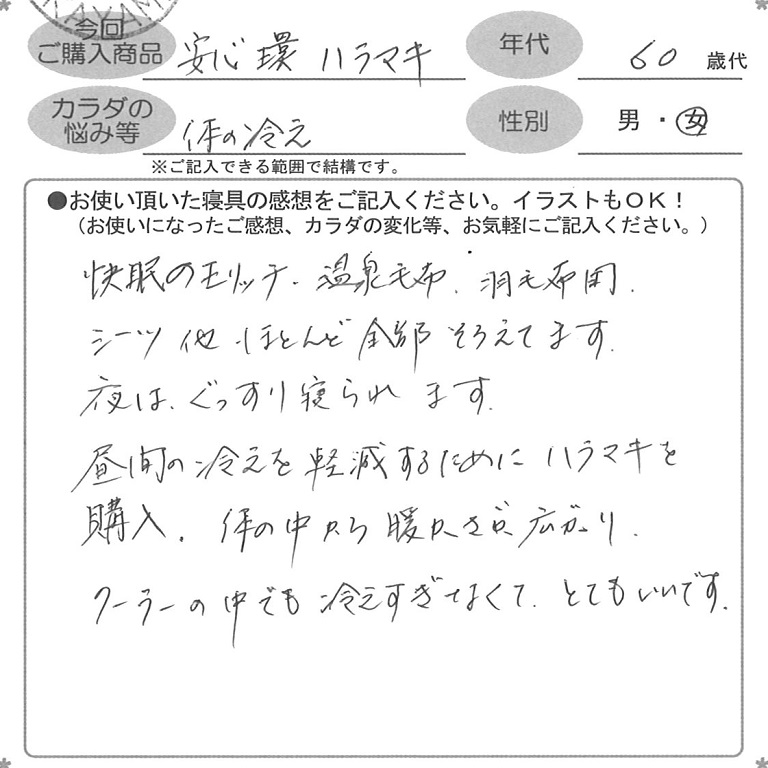 今回
ご購入商品
安心環 ハラマキ
年代
60 歳代
カラダの
悩み等
体の冷え
性別
男・女
※ご記入できる範囲で結構です。
●お使い頂いた寝具の感想をご記入ください。イラストもOK！
(お使いになったご感想、カラダの変化等、お気軽にご記入ください。)
快眠のモリッチ.温泉毛布.羽毛布団.
シーツ 他 ほとんど 全部 そろえてます.
夜は、ぐっすり寝られ ます.
昼間の冷えを軽減するために ハラマキを
購入. 体の中から暖かさが広がり.
クーラーの中でも 冷えすぎなくて.とてもいいです.